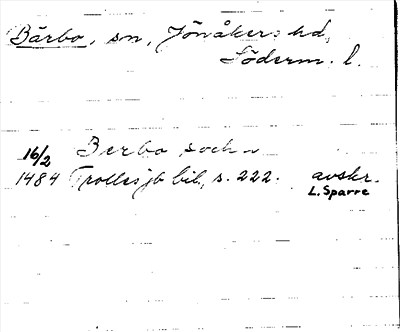 Bärbo, sn, Jönåkers hd,
Söderm. l.
16/2 Berbo sochn
1484 Trollesjb bib, s. 222. avskr.
L. Sparre